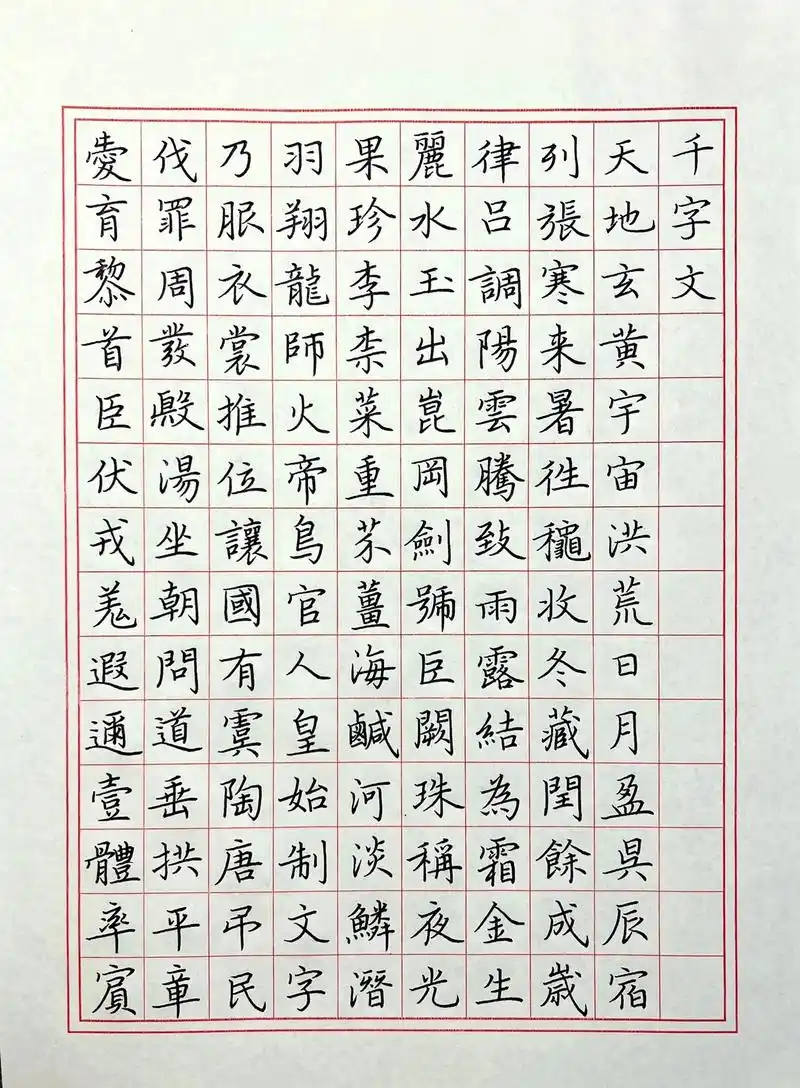 千字文
天地玄黄宇宙洪荒日月盈昃辰宿
列張寒来暑往穐收冬藏閏餘成歲
律呂調陽雲騰致雨露結為霜金生
麗水玉出崑岡劍號臣闕珠稱夜光
果珍李柰菜重芥薑海鹹河淡鱗潛
羽翔龍師火帝鳥官人皇始制文字
乃服衣裳推位讓國有虞陶唐弔民
伐罪周發殿湯坐朝問道垂拱平章
愛育黎首臣伏戎羌遐邇壹體率賓